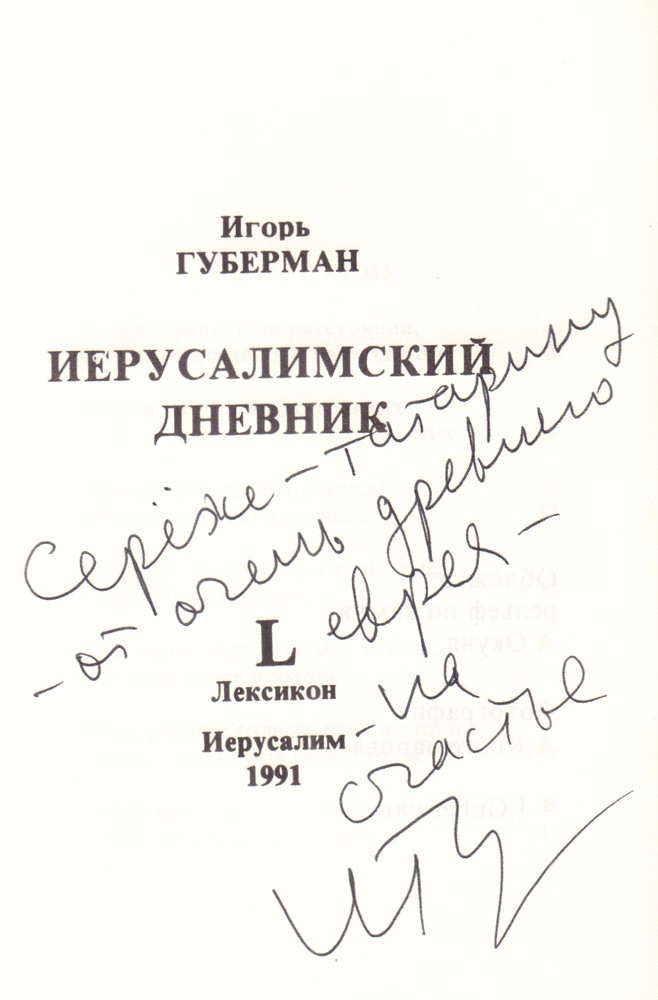 Игорь
ГУБЕРМАН
ИЕРУСАЛИМСКИЙ
ДНЕВНИК
Серёже – татарину
– от очень древнего
еврея –
– на
счастье
L
Лексикон
Иерусалим
1991